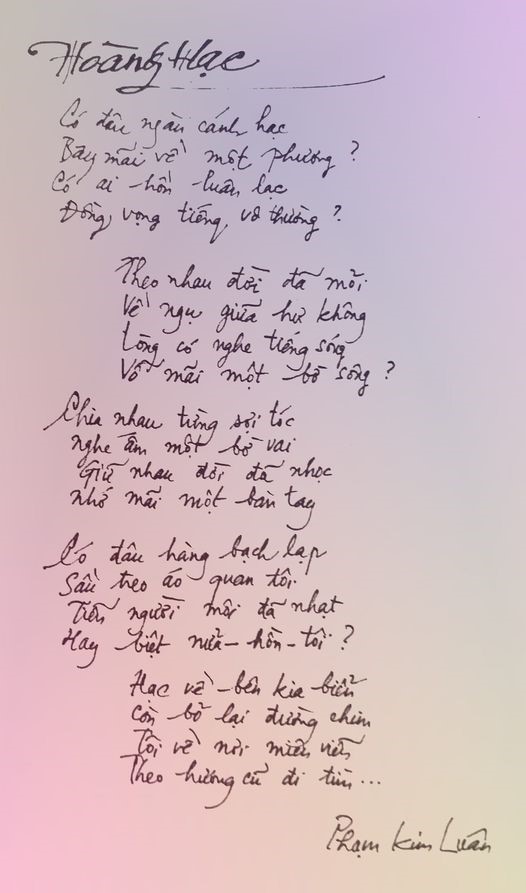 Hoàng Hạc
Có đâu ngàn cánh hạc
Bay mãi về một phương ?
Có ai hồn luân lạc
Đồng vọng tiếng vô thường ?
Theo nhau đời đã mỏi
Về ngụ giữa hư không
Lòng có nghe tiếng sóng
Vỗ mãi một bờ sông ?
Chia nhau từng sợi tóc
nghe ấm một bờ vai
Giữ nhau đời đã nhọc
nhớ mãi một bàn tay
Có đâu hàng bạch lạp
Sầu treo áo quan tôi
Tiễn người môi đã nhạt
Hay biệt nửa - hồn - tôi ?
Hạc về - bên kia biển
Còn bỏ lại đường chim
Tôi về nơi miên viễn
Theo hương cũ đi tìm ...
Phạm Kim Luân